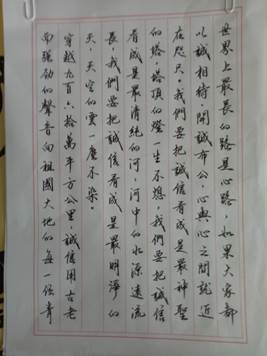 世界上最長的路是心路，如果大家都
以誠相待，開誠布公，心與心之間就近
在咫尺。我們要把誠信看成是最神聖
的塔，塔頂的燈一生不熄，我們要把誠信
看成是最清純的河，河中的水源遠流
長，我們要把誠信看成是最明淨的
天，天空的雲一塵不染。
穿越九百六拾萬平方公里，誠信用古老
而強勁的聲音向祖國大地的每一個青